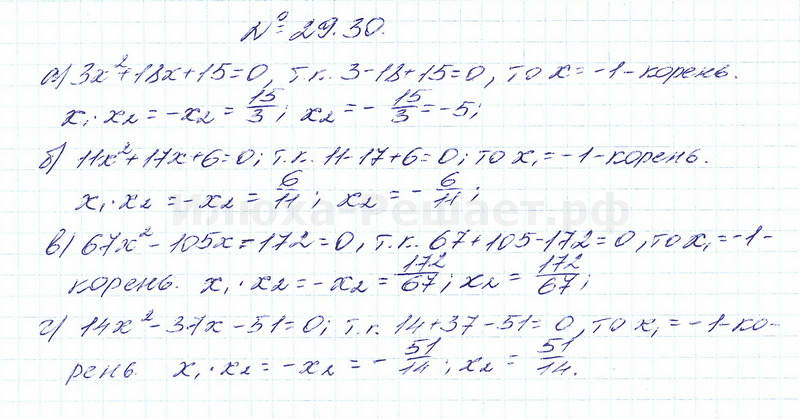 № 29.30.
а) 3x²+18x+15=0, т.к. 3-18+15=0, то x=-1-корень.
x₁·x₂=-x₂=15/3; x₂=-15/3=-5;
б) 11x²+17x+6=0; т.к. 11-17+6=0; то x₁=-1-корень.
x₁·x₂=-x₂=6/11; x₂=-6/11;
Илюха-Решает.рф
в) 67x²-105x-172=0, т.к. 67+105-172=0, то x₁=-1-
корень. x₁·x₂=-x₂=172/67; x₂=172/67;
г) 14x²-37x-51=0; т.к. 14+37-51=0, то x₁=-1-ко-
рень. x₁·x₂=-x₂=-51/14; x₂=51/14.